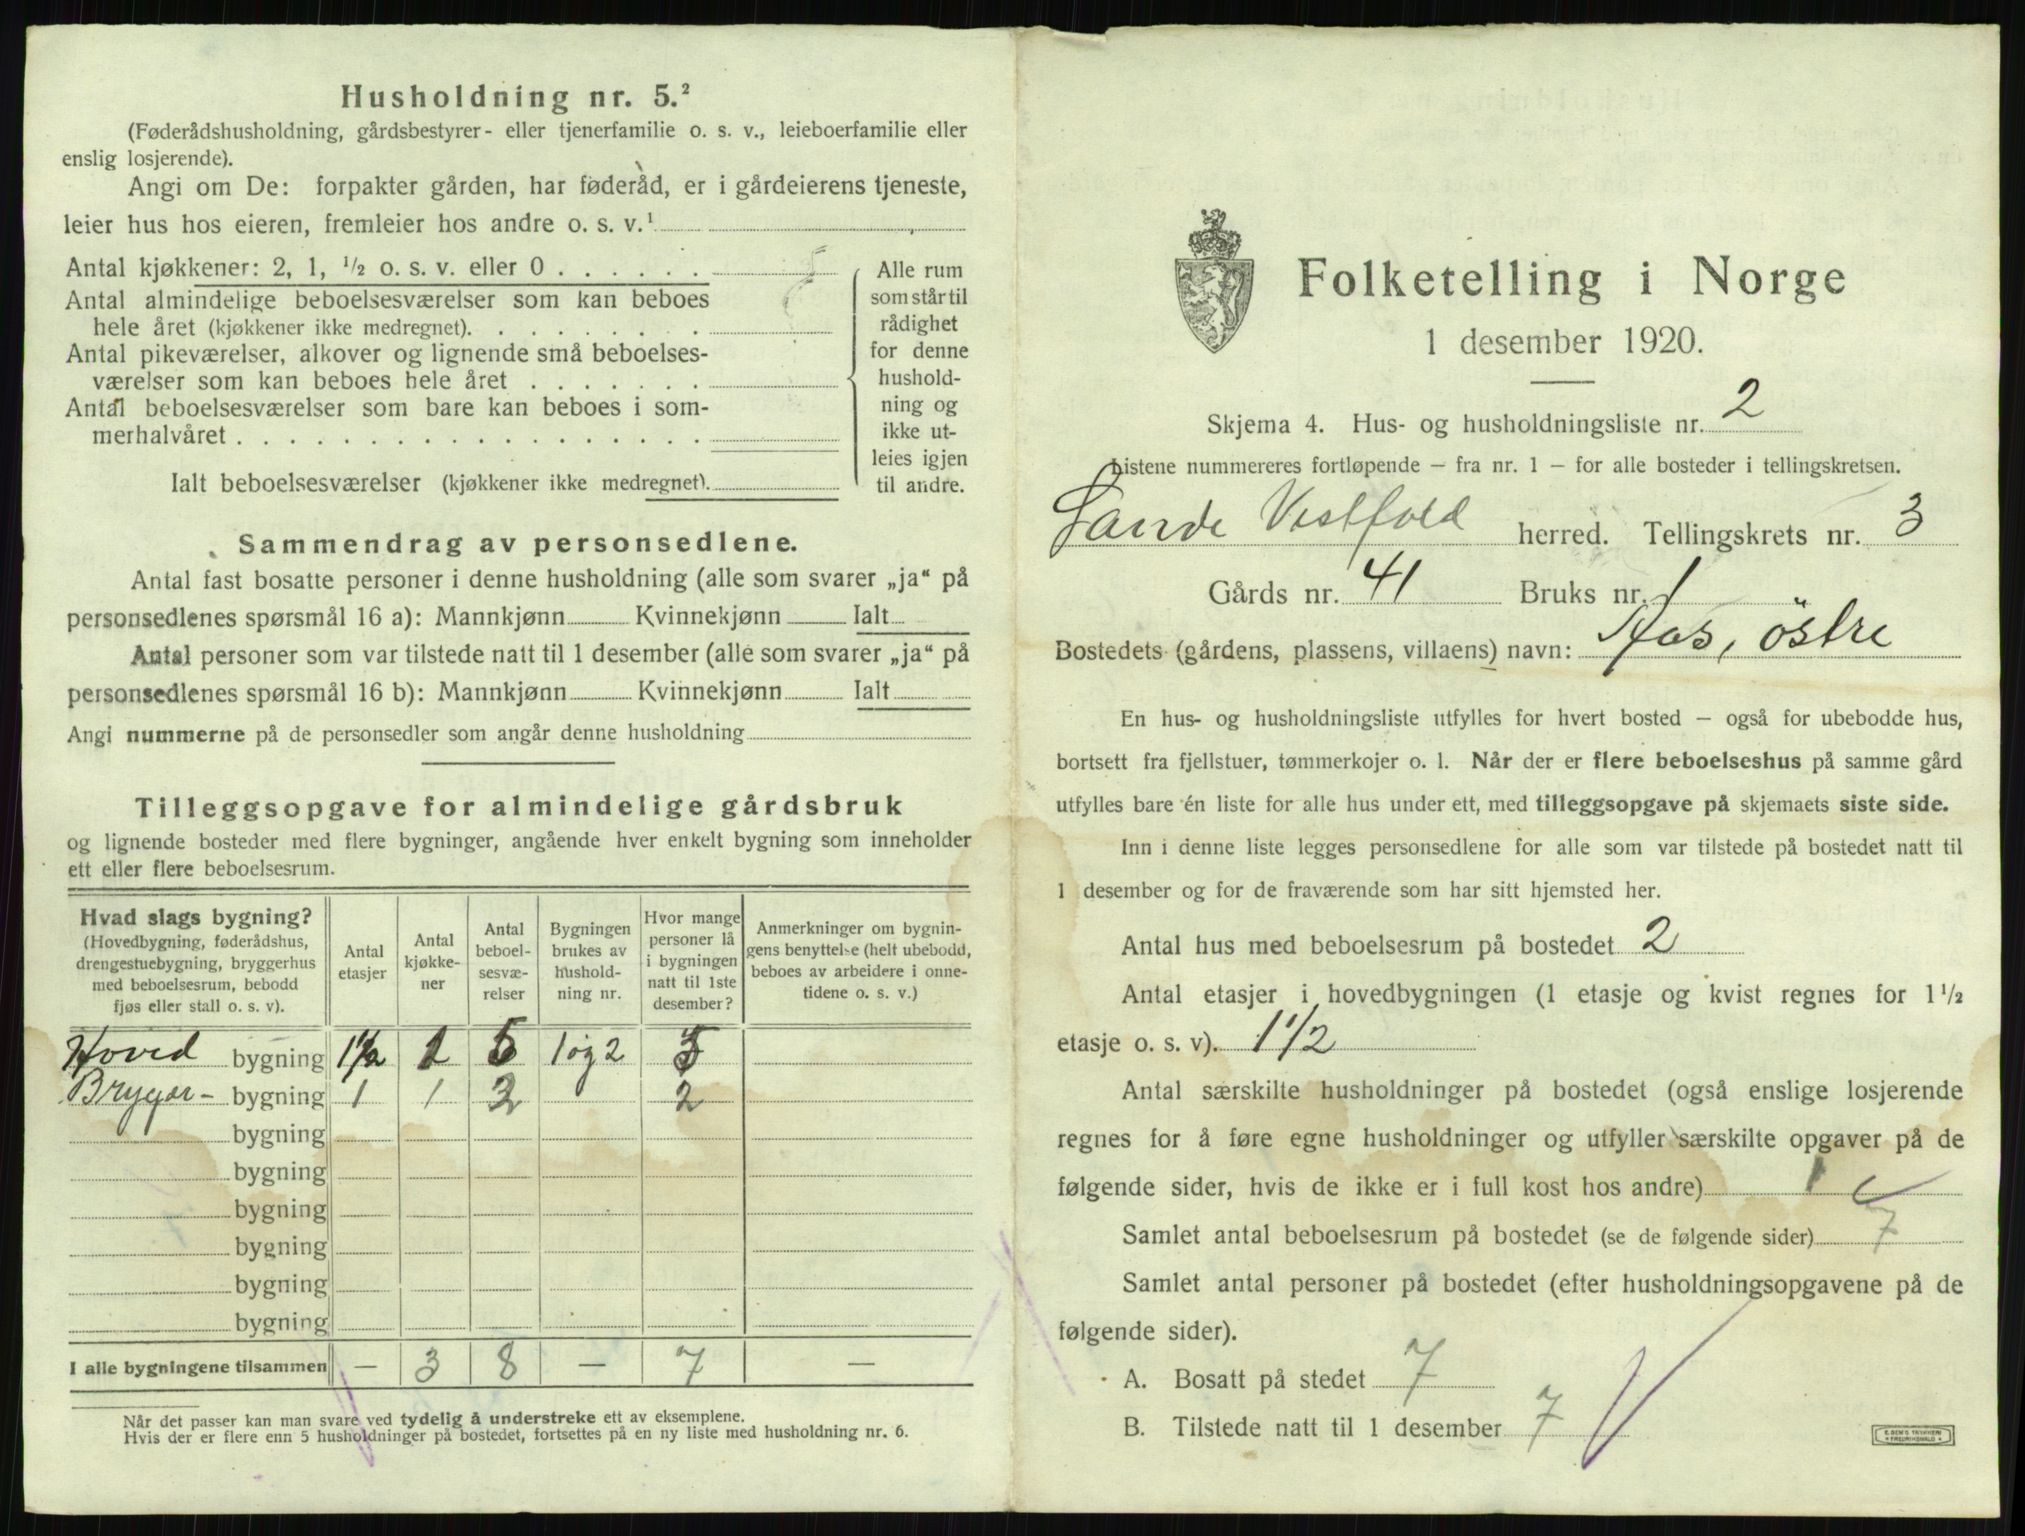 Husholdning nr. 5.²
(Føderådshusholdning, gårdsbestyrer- eller tjenerfamilie o. s. v., leieboerfamilie eller
enslig losjerende).
Angi om De: forpakter gården, har føderåd, er i gårdeierens tjeneste,
leier hus hos eieren, fremleier hos andre o. s. v.¹
Antal kjøkkener: 2, 1, ½ o. s. v. eller 0 . . . . . .
Antal almindelige beboelsesværelser som kan beboes
hele året (kjøkkener ikke medregnet). . . . . . . . .
Antal pikeværelser, alkover og lignende små beboelses-
værelser som kan beboes hele året . . . . . . .
Antal beboelsesværelser som bare kan beboes i som-
merhalvåret . . . . . . . . . . . . . . . . . .
Ialt beboelsesværelser (kjøkkener ikke medregnet).
Alle rum
som står til
rådighet
for denne
hushold-
ning og
ikke ut-
leies igjen
til andre.
Sammendrag av personsedlene.
Antal fast bosatte personer i denne husholdning (alle som svarer „ja“ på
personsedlenes spørsmål 16 a): Mannkjønn Kvinnekjønn Ialt
Antal personer som var tilstede natt til 1 desember (alle som svarer „ja“ på
personsedlenes spørsmål 16 b): Mannkjønn Kvinnekjønn Ialt
Angi nummerne på de personsedler som angår denne husholdning
Tilleggsopgave for almindelige gårdsbruk
og lignende bosteder med flere bygninger, angående hver enkelt bygning som inneholder
ett eller flere beboelsesrum.
Hvad slags bygning?
(Hovedbygning, føderådshus,
drengestuebygning, bryggerhus
med beboelsesrum, bebodd
fjøs eller stall o. s. v).
Antal
etasjer
Antal
kjøkke-
ner
Antal
beboel-
sesvæ-
relser
Bygningen
brukes av
hushold-
ning nr.
Hvor mange
personer lå
i bygningen
natt til 1ste
desember?
Anmerkninger om bygnin-
gens benyttelse (helt ubebodd,
beboes av arbeidere i onne-
tidene o. s. v.)
Hoved bygning 1½ 1 5 1 og 2 5
Brygger- bygning 1 1 2 2
bygning
bygning
bygning
bygning
bygning
bygning
I alle bygningene tilsammen — 3 8 — 7 —
Når det passer kan man svare ved tydelig å understreke ett av eksemplene.
Hvis der er flere enn 5 husholdninger på bostedet, fortsettes på en ny liste med husholdning nr. 6.
Folketelling i Norge
1 desember 1920.
Skjema 4. Hus- og husholdningsliste nr. 2
Listene nummereres fortløpende — fra nr. 1 — for alle bosteder i tellingskretsen.
Sande Vestfold herred. Tellingskrets nr. 3
Gårds nr. 41 Bruks nr. 1
Bostedets (gårdens, plassens, villaens) navn: Aas, östre
En hus- og husholdningsliste utfylles for hvert bosted — også for ubebodde hus,
bortsett fra fjellstuer, tømmerkojer o. l. Når der er flere beboelseshus på samme gård
utfylles bare én liste for alle hus under ett, med tilleggsopgave på skjemaets siste side.
Inn i denne liste legges personsedlene for alle som var tilstede på bostedet natt til
1 desember og for de fraværende som har sitt hjemsted her.
Antal hus med beboelsesrum på bostedet 2
Antal etasjer i hovedbygningen (1 etasje og kvist regnes for 1½
etasje o. s. v). 1½
Antal særskilte husholdninger på bostedet (også enslige losjerende
regnes for å føre egne husholdninger og utfyller særskilte opgaver på de
følgende sider, hvis de ikke er i full kost hos andre) 1
Samlet antal beboelsesrum på bostedet (se de følgende sider) 7
Samlet antal personer på bostedet (efter husholdningsopgavene på de
følgende sider).
A. Bosatt på stedet 7
B. Tilstede natt til 1 desember 7